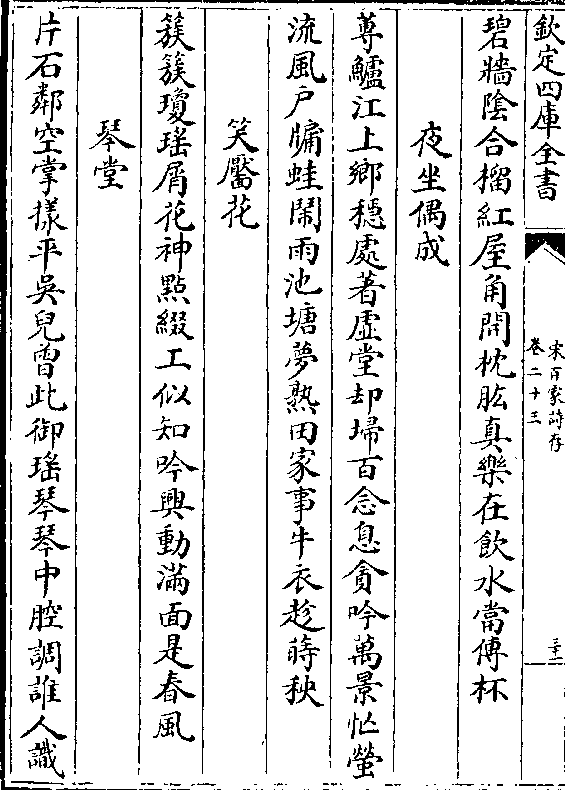 欽定四庫全書
宋百家詩存
卷二十三
三十一
碧牆陰合榴紅屋角開枕肱真樂在飲水當傅杯
夜坐偶成
蓴鱸江上鄉穩處著虛堂却埽百念息貪吟萬景忙螢
流風户牖蛙鬧雨池塘夢熟田家事牛衣趁蒔秧
笑靨花
簇簇瓊瑤屑花神點綴工似知吟興動滿面是春風
琴堂
片石鄰空掌樣平吳兒曾此御瑤琴琴中腔調誰人識